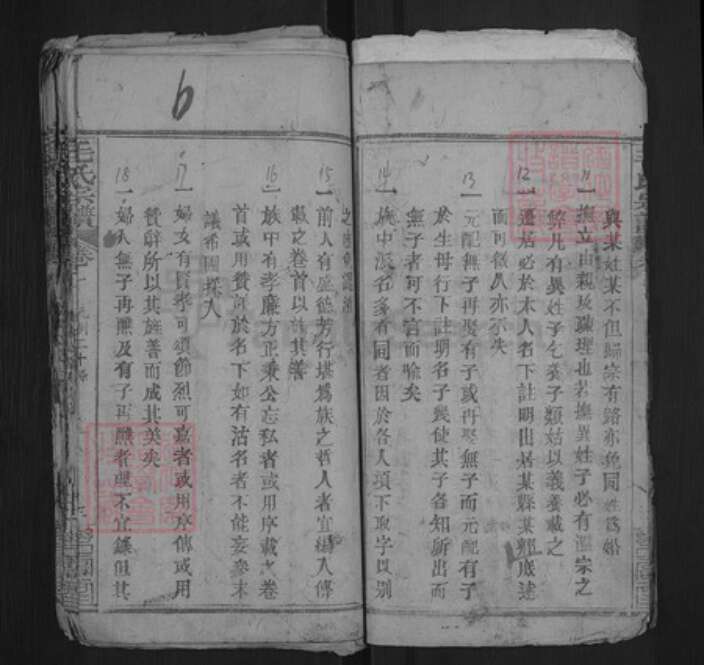 與某姓某不但歸宗有路亦免同姓爲婚
11 一撫立由親及疎理也若撫異姓子必有溷宗之
弊凡有異姓子乞養子類姑以義養載之
12 一遷居必於本人名下註明由居某縣某
而可徵人亦不失
13 一元配無子再娶有子或再娶無子而元配有子
於生母行下註明名子幾使其子各知所出而
無子者可不言而喻矣
14 一族中派名多有同者因於各人項下取字以別
之
15 一前人有盛德芳行堪爲族之哲人者宜編入傳
載之卷首以旌其善
16 一族中有孝廉方正秉公忘私者或用序載之卷
首或用贊詞於名下如有沽名者不能妄參末
議希圖採入
17 一婦女有賢孝可頌節烈可嘉者或用序傳或用
贊辭所以其旌善而成其美矣
18 一婦人無子再醮及有子再醮者理不宜錄但其
毛氏宗譜 卷
6